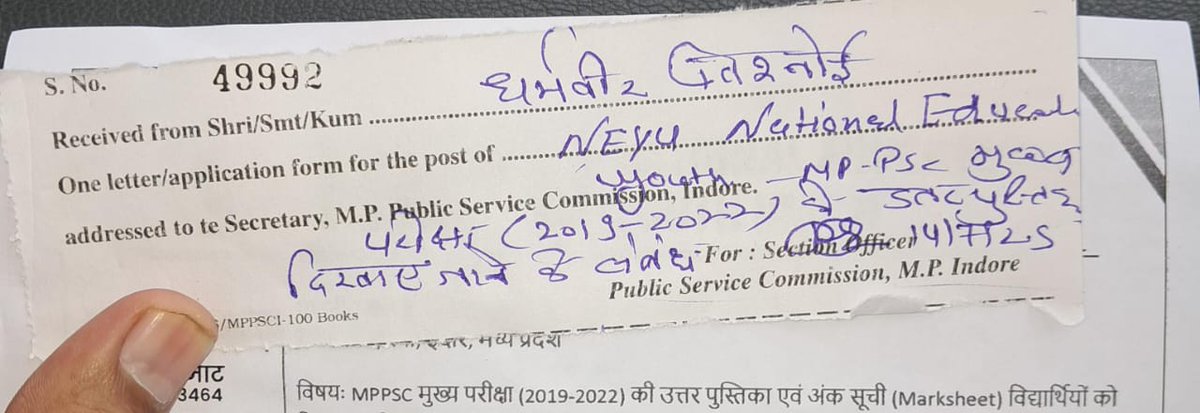 S. No. 49992
Received from Shri/Smt/Kum धर्मवीर
One letter/application form for the post of NEYU National Educat
youth
addressed to te Secretary, M.P. Public Service Commission, Indore. MP-PSC मुख्य
परीक्षा (2019-2022) के उत्तर पुस्तिका
दिखाए जाने के संबंध
For : Section Officer 14/7/25
Public Service Commission, M.P. Indore
/MPPSCI-100 Books
मध्य प्रदेश
3464
विषयः MPPSC मुख्य परीक्षा (2019-2022) की उत्तर पुस्तिका एवं अंक सूची (Marksheet) विद्यार्थियों को